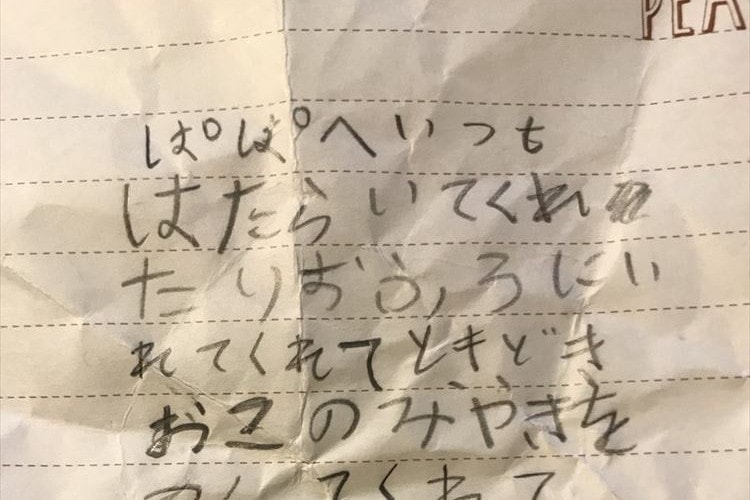 PEA
ぱぱへいつも
はたらいてくれ
たりおふろにい
れてくれてときどき
おこのみやきを
てくれて